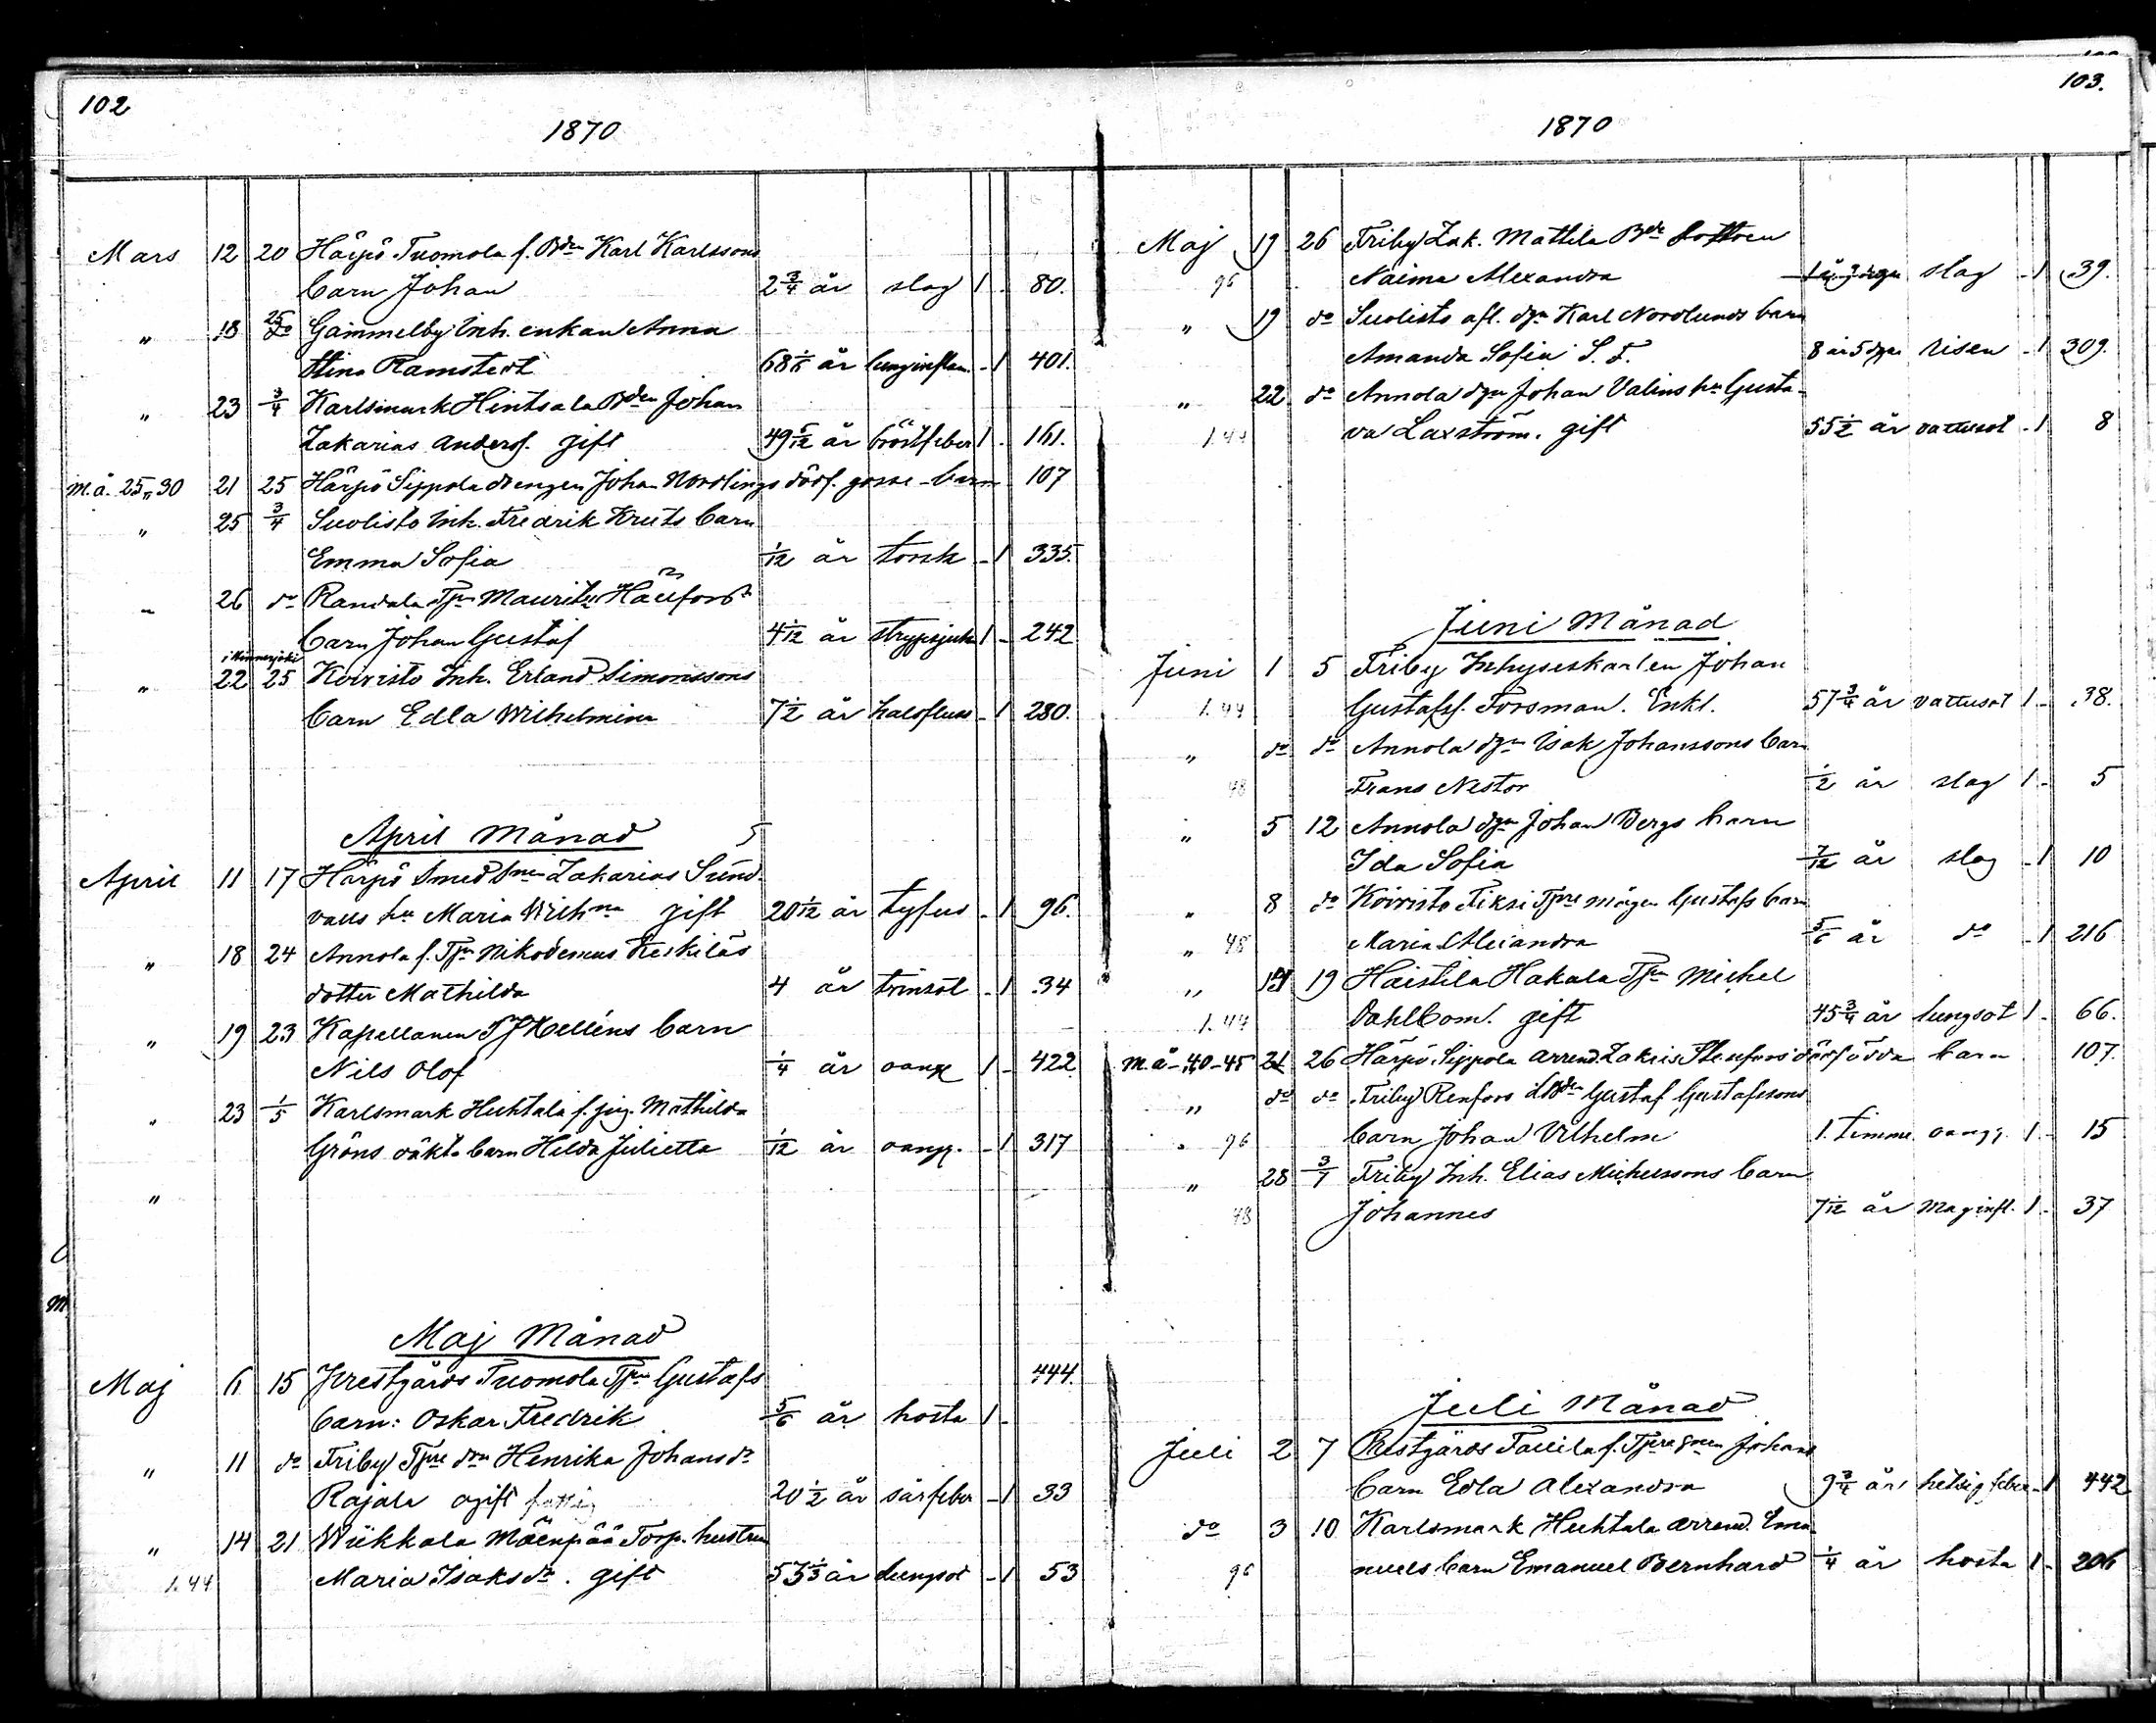 102
1870
Mars 12 20 Härpö Tuomola f. Bden Karl Karlssons
barn Johan 2 3/4 år slag 1 - 80.
" 18 25 Gammelby Inh. enkan Anna
Stina Ramstedt 68 1/6 år lunginflam. - 1 401.
" 23 3/4 Karlsmark Hintsala Bden Johan
Zakarias Andersf. gift 49 5/12 år bröstfeber 1 - 161.
M.å. 25-30 21 25 Härpö Sippola drengen Johan Nordlings dödf. gosse-barn 107
" 25 3/4 Suolisto Inh. Fredrik Kruts barn
Emma Sofia 1/12 år torsk - 1 335.
" 26 do Randala Tpn Mauritz Hällfors
barn Johan Gustaf 4 1/12 år strypsjuka 1 - 242
" 22 25 Koivisto Inh. Erland Simonssons
barn Edla Wilhelmina 7 1/2 år halsfluss - 1 280.
April Månad 5
April 11 17 Härpö Smed Zakarias Sund-
valls hu Maria Wilhna gift 20 1/12 år tyfus - 1 96.
" 18 24 Annola f. Tpn Nikodemus Keskiläs
dotter Mathilda 4 år trinsot - 1 34
" 19 23 Kapellanen Helléns barn
Nils Olof 1/4 år oang 1 - 422
" 23 1/5 Karlsmark Huhtala f. pig. Mathilda
Gröns oäkta barn Hilda Julietta 1/12 år oang. - 1 317
"
Maj Månad
Maj 6 15 Prestgårds Tuomola Tpn Gustafs 444.
barn: Oskar Fredrik 5/6 år hosta 1 -
" 11 do Friby Tpre dn Henrika Johansdr
Rajala ogift fattig 20 1/2 år sårfeber - 1 33
" 14 21 Wiikkala Mäenpää Torp. hustru
1.44 Maria Isaksdr. gift 55 1/3 år lungsot - 1 53
103.
1870
Maj 19 26 Friby Zak. Mattila Bde dottren
96 Naima Alexandra slag - 1 39.
" 19 do Suolisto afl. dgn Karl Nordlunds barn
Amanda Sofia S. F. 8 år 5 dgr risen - 1 309.
" 22 do Annola dgn Johan Valins hu Gusta-
1.44 va Laxström. gift 55 1/2 år vattusot - 1 8
Juni Månad
Juni 1 5 Friby Inhyseskarlen Johan
1.44 Gustafsf. Forsman. Enkl. 57 3/4 år vattusot 1 - 38.
" do do Annola dgn Isak Johanssons barn
48 Frans Nestor 1/2 år slag 1 - 5
" 5 12 Annola dgn Johan Bergs barn
Ida Sofia 7/12 år slag - 1 10
" 8 do Koivisto Fiksi Tpre mågen Gustafs barn
" 48 Maria Alexandra 5/6 år do - 1 216
" 19 Haistila Hakala Tpn Mickel
1.44 Dahlbom. gift 45 3/4 år lungsot 1 - 66.
M.å - 40-45 21 26 Härpö Sippola arrend. Zakris Stenfors dödfödda barn 107.
" do do Friby Renfors Gustaf Gustafssons
" 96 barn Johan Vilhelm 1. timme oang. 1 - 15
" 28 3/7 Friby Inh. Elias Mickelssons barn
48 Johannes 7 1/12 år Maginfl. 1 - 37
Juli Månad
Juli 2 7 Prestgårds Taulila f. Tpre Johans
barn Edla Alexandra 9 3/4 år hetsig feber - 1 442
do 3 10 Karlsmark Huhtala arrend. Ema-
96 nuels barn Emanuel Bernhard 1/4 år hosta 1 - 206